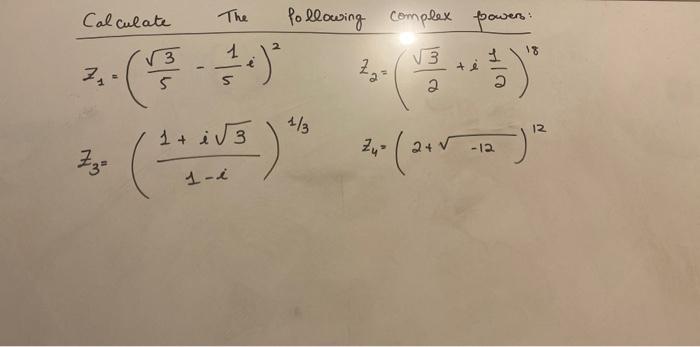 Calculate The following complex powers:
Z₁ = (√3/5 - 1/5 i)² Z₂ = (√3/2 + i 1/2)¹⁸
Z₃ = ((1 + i√3)/(1 - i))^(1/3) Z₄ = (2 + √-12)¹²